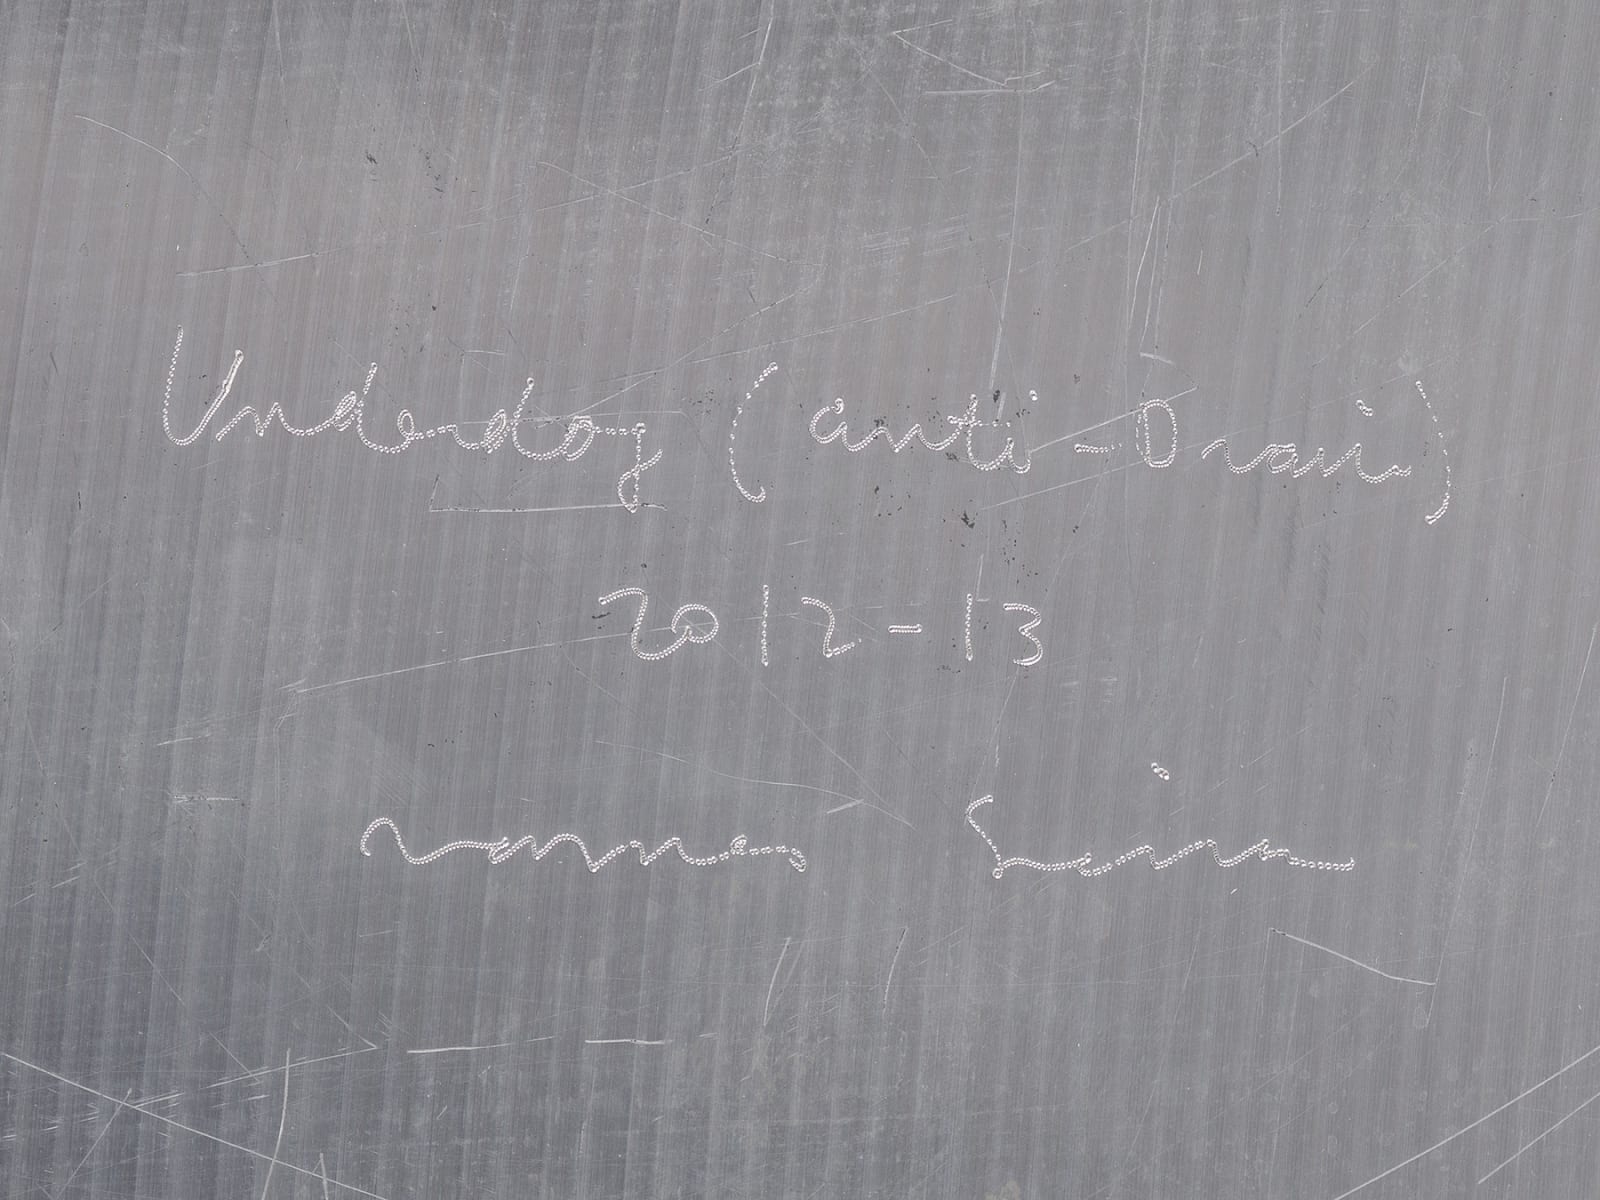 Underdog (anti-Drain)
2012-13